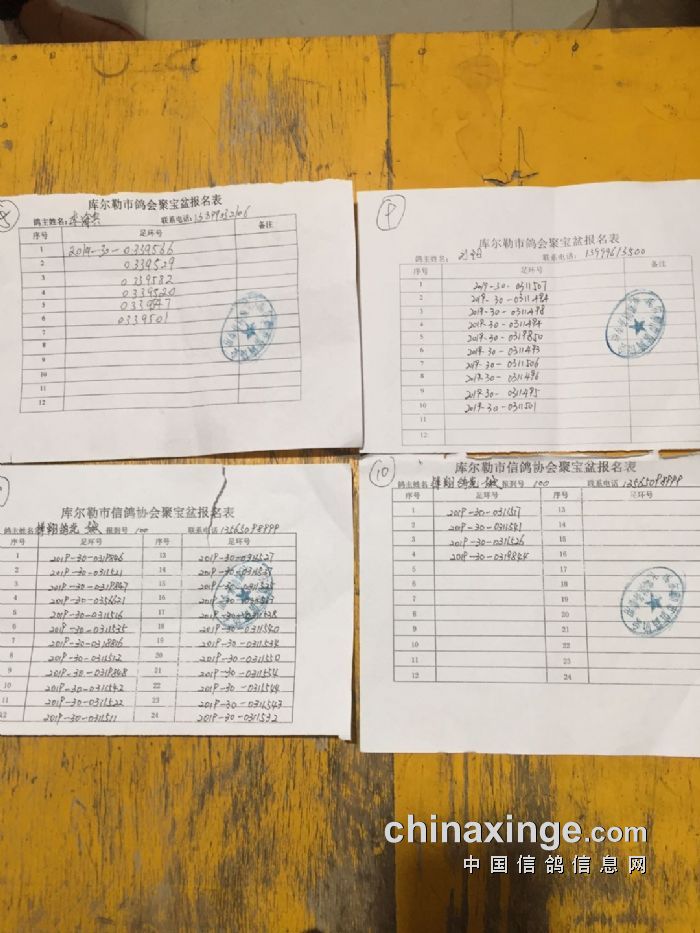 库尔勒市鸽会聚宝盆报名表
鸽主姓名: 联系电话:
序号 足环号 备注
1 2019-30-0339566
2 0339529
3 0339582
4 0339520
5
6 0339501
7
8
9
10
11
12
9
库尔勒市鸽会聚宝盆报名表
鸽主姓名: 联系电话: 13999613500
序号 足环号 备注
1 2019-30-0311507
2 2019-30-0311484
3 2019-30-0311498
4 2019-30-0311494
5 2019-30-0319850
6 2019-30-0311493
7 2019-30-0311506
8 2019-30-0311496
9 2019-30-0311495
10 2019-30-0311501
11
12
库尔勒市信鸽协会聚宝盆报名表
鸽主姓名 报到号 100 联系电话 13565098999
序号 足环号 序号 足环号
1 2019-30-0319846 13 2019-30-0311527
2 2019-30-0311521 14
3 2019-30-0319847 15
4 2019-30-0336621 16
5 2019-30-0311516 17 2019-30-0311538
6 2019-30-0311535 18 2019-30-0311540
7 2019-30-0319816 19 2019-30-0311534
8 2019-30-0311512 20 2019-30-0311550
9 2019-30-0319848 21 2019-30-0311554
10 2019-30-0311542 22 2019-30-0311544
11 2019-30-0311522 23 2019-30-0311543
12 2019-30-0311511 24 2019-30-0311532
10
库尔勒市信鸽协会聚宝盆报名表
鸽主姓名 报到号 100 联系电话 13565098999
序号 足环号 序号 足环号
1 2019-30-0311517 13
2 2019-30-0311541 14
3 2019-30-0311526 15
4 2019-30-0319844 16
5 17
6 18
7 19
8 20
9 21
10 22
11 23
12 24
chinaxinge.com
中国信鸽信息网